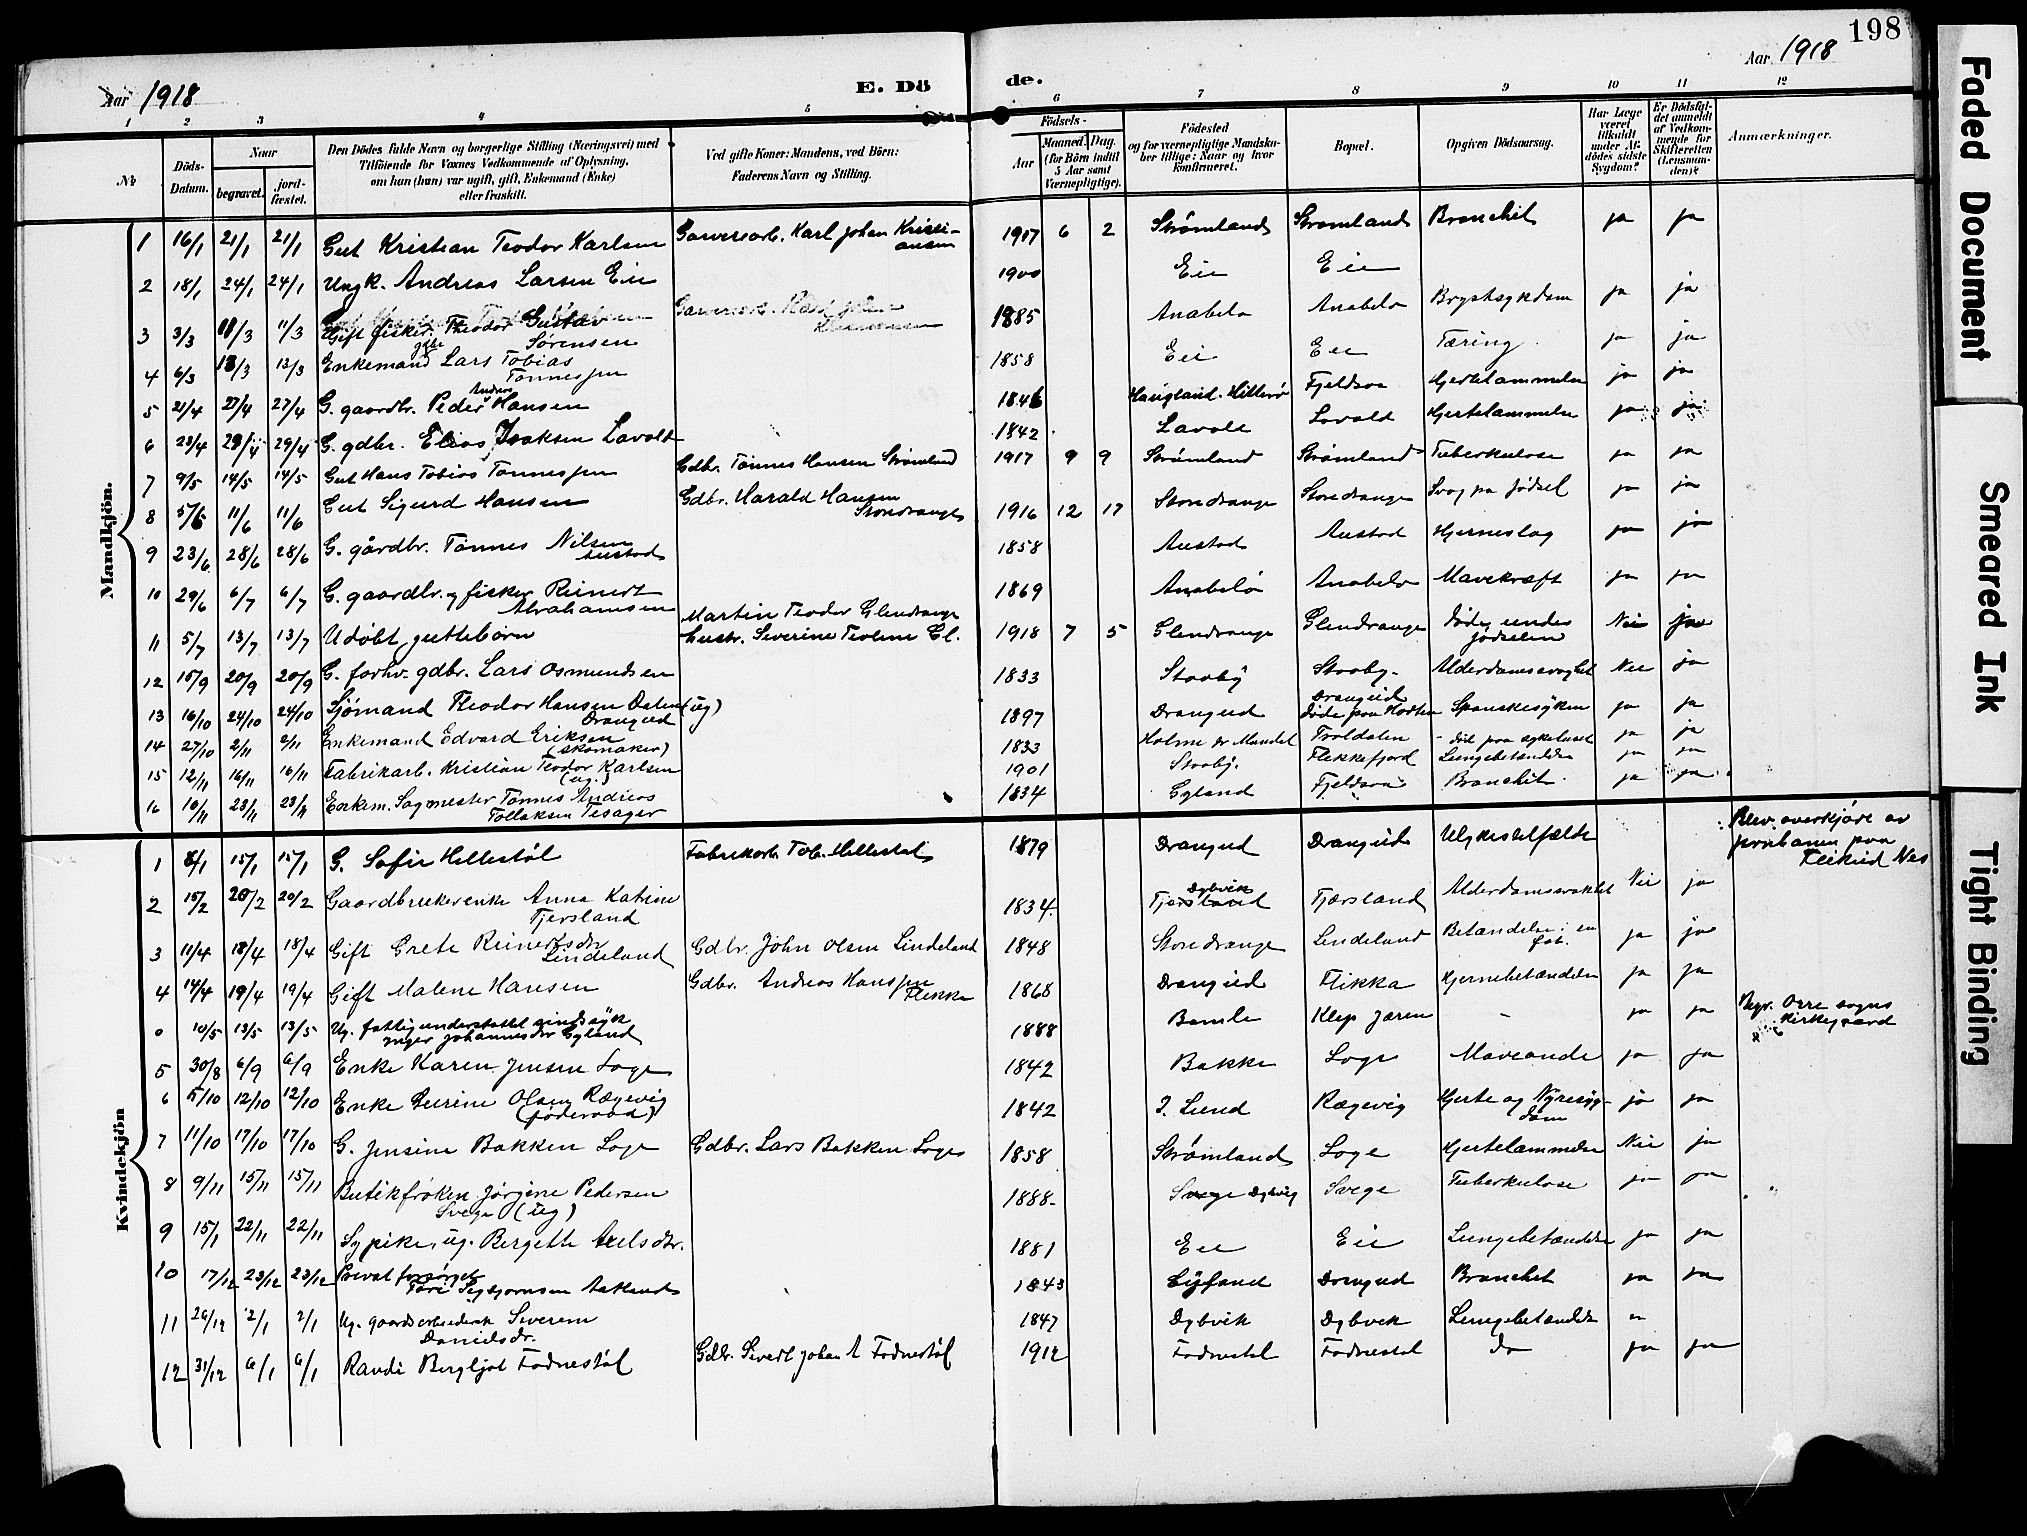 198
Aar 1918
E. Dö
de.
Aar 1918
1 2 3 4 5 6 7 8 9 10 11 12
№
Döds-Datum.
Naar
begravet.
jord-fæstet.
Den Dödes fulde Navn og borgerlige Stilling (Næringsvei) med
Tilföiende for Voxnes Vedkommende af Oplysning,
om han (hun) var ugift, gift, Enkemand (Enke)
eller fraskilt.
Ved gifte Koner: Mandens, ved Börn:
Faderens Navn og Stilling.
Födsels-
Aar
Maaned. Dag.
(for Börn indtil
5 Aar samt
Værnepligtige).
Födested
og for værnepligtige Mandska-
ber tillige: Naar og hvor
Konfirmeret.
Bopæl.
Opgiven Dödsaarsag.
Har Læge
været
tilkaldt
under Af-
dödes sidste
Sygdom?
Er Dödsfal-
det anmeldt
af Vedkom-
mende for
Skifteretten
(Lensman-
den)?
Anmærkninger.
Mandkjön.
1 16/1 21/1 21/1 Gut Kristian Teodor Karlsen Garveriarb. Karl Johan Kristi-
ansen 1917 6 2 Strømland Strømland Bronchit ja ja
2 18/1 24/1 24/1 Ungk. Andreas Larsen Eie 1900 Eie Eie
3 3/3 11/3 11/3 Gift fisker Theodor Gustav
Sørensen 1885 Anabelø Anabelø Brystsykdom ja ja
4 6/3 13/3 13/3 Enkemand Lars Tobias
Tønnesen 1858 Eie Eie Tæring ja ja
5 21/4 27/4 27/4 G. gaardbr. Peder Andreas Hansen 1846 Haugland. Hitterø Fjeldsaa Hjertelammelse ja ja
6 23/4 29/4 29/4 G. gdbr. Elias Isaksen Lavold 1842 Lavole Lavold Hjertelammelse ja ja
7 9/5 14/5 14/5 Gut Hans Tobias Tønnessen Gdbr. Tønnes Hansen Strømland 1917 9 9 Strømland Strømland Tuberkulose ja ja
8 5/6 11/6 11/6 Gut Sigurd Hansen Gdbr. Harald Hansen
Storedrange 1916 12 17 Storedrange Storedrange Svag fra fødsel ja ja
9 23/6 28/6 28/6 G. gårdbr. Tønnes Nilsen
Austad 1858 Austad Austad Hjerneslag ja ja
10 29/6 6/7 6/7 G. gaardbr. og fisker Reinert
Abrahamsen 1869 Anabelø Anabelø Mavekræft ja ja
11 5/7 13/7 13/7 Udøbt guttebørn Martin Teodor Glendrange
hustr. Severine Teoline Gl. 1918 7 5 Glendrange Glendrange Døde under
fødselen Nei ja
12 15/9 20/9 20/9 G. forhv. gdbr. Lars Osmundsen 1833 Stooby Stooby Alderdomssvaghet Nei ja
13 16/10 24/10 24/10 Sjømand Theodor Hansen Dalen (ug)
Drangeid 1897 Drangeid Drangeid
døde paa Horten Spanskesyken ja ja
14 27/10 2/11 2/11 Enkemand Edvard Eriksen
(skomaker) 1833 Holme pr Mandal Troldalen - død paa sykehuset ja ja
15 12/11 16/11 16/11 Fabrikarb. Kristian Teodor Karlsen
(ug.) 1901 Stooby. Flekkefjord Lungebetændelse ja ja
16 18/11 23/11 23/11 Enkem. Sagmester Tønnes Andreas
Tollaksen Tesaker 1834 Gyland Fjeldsaa Bronchit ja ja
Kvindekjön
1 8/1 15/1 15/1 G. Sofie Hellestøl Fabrikarb. Tob. Hellestøl 1879 Drangeid Drangeid Ulykkestilfælde Blev overkjørt av
jernbanen paa
Flikeid Nes
2 15/2 20/2 20/2 Gaardbrukerenke Anna Katrine
Tjersland 1834. Dybvik
Tjersland Tjersland Alderdomssvakhet Nei ja
3 11/4 18/4 18/4 Gift Grete Reinertsdr
Lindeland Gdbr. John Olsen Lindeland 1848 Storedrange Lindeland Betændelse i en
fot. ja ja
4 14/4 19/4 19/4 Gift Malene Hansen Gdbr. Andreas Hanssen
Flikka 1868 Drangeid Flikka Hjernebetændelse ja ja
0 10/5 13/5 13/5 Ug. fattigunderstøttet sindssyk
Inger Johannesdr Egeland 1888 Bamle Klep Jæren - ja ja Begr. Orre sogns
kirkegaard
5 30/8 6/9 6/9 Enke Karen Jensen Loge 1842 Bakke Loge Maveonde ja ja
6 5/10 12/10 12/10 Enke Serine Olsen Rægevig
(føderaad) 1842 S. Lund Rægevig Hjerte og Nyresyg-
dom ja ja
7 11/10 17/10 17/10 G. Jensine Bakken Loge Gdbr. Lars Bakken Loge 1858 Strømland Loge Hjertelammelse Nei ja
8 9/11 15/11 15/11 Butikfrøken Jørgine Pedersen
Svege (ug) 1888- Svege Dybvig Svege Tuberkulose ja ja
9 15/1 22/11 22/11 Sypike, ug. Bergette Axelsdr. 1881 Eie Eie Lungebetændelse ja ja
10 17/12 23/12 23/12 Privat forsørget
Tori Sigbjørnsen Aatland 1843 Gyland Drangeid Bronchit ja ja
11 26/12 2/1 2/1 Ug. gaardsarbeidersk Severin
Danielsdr. 1847 Dybvik Dybvik Lungebetændelse "
12 31/12 6/1 6/1 Randi Bergljot Fodnestøl Gdbr. Sivert Johan A Fodnestøl 1912 Fodnestøl Fodnestøl do ja ja
Faded Document
Smeared Ink
Tight Binding